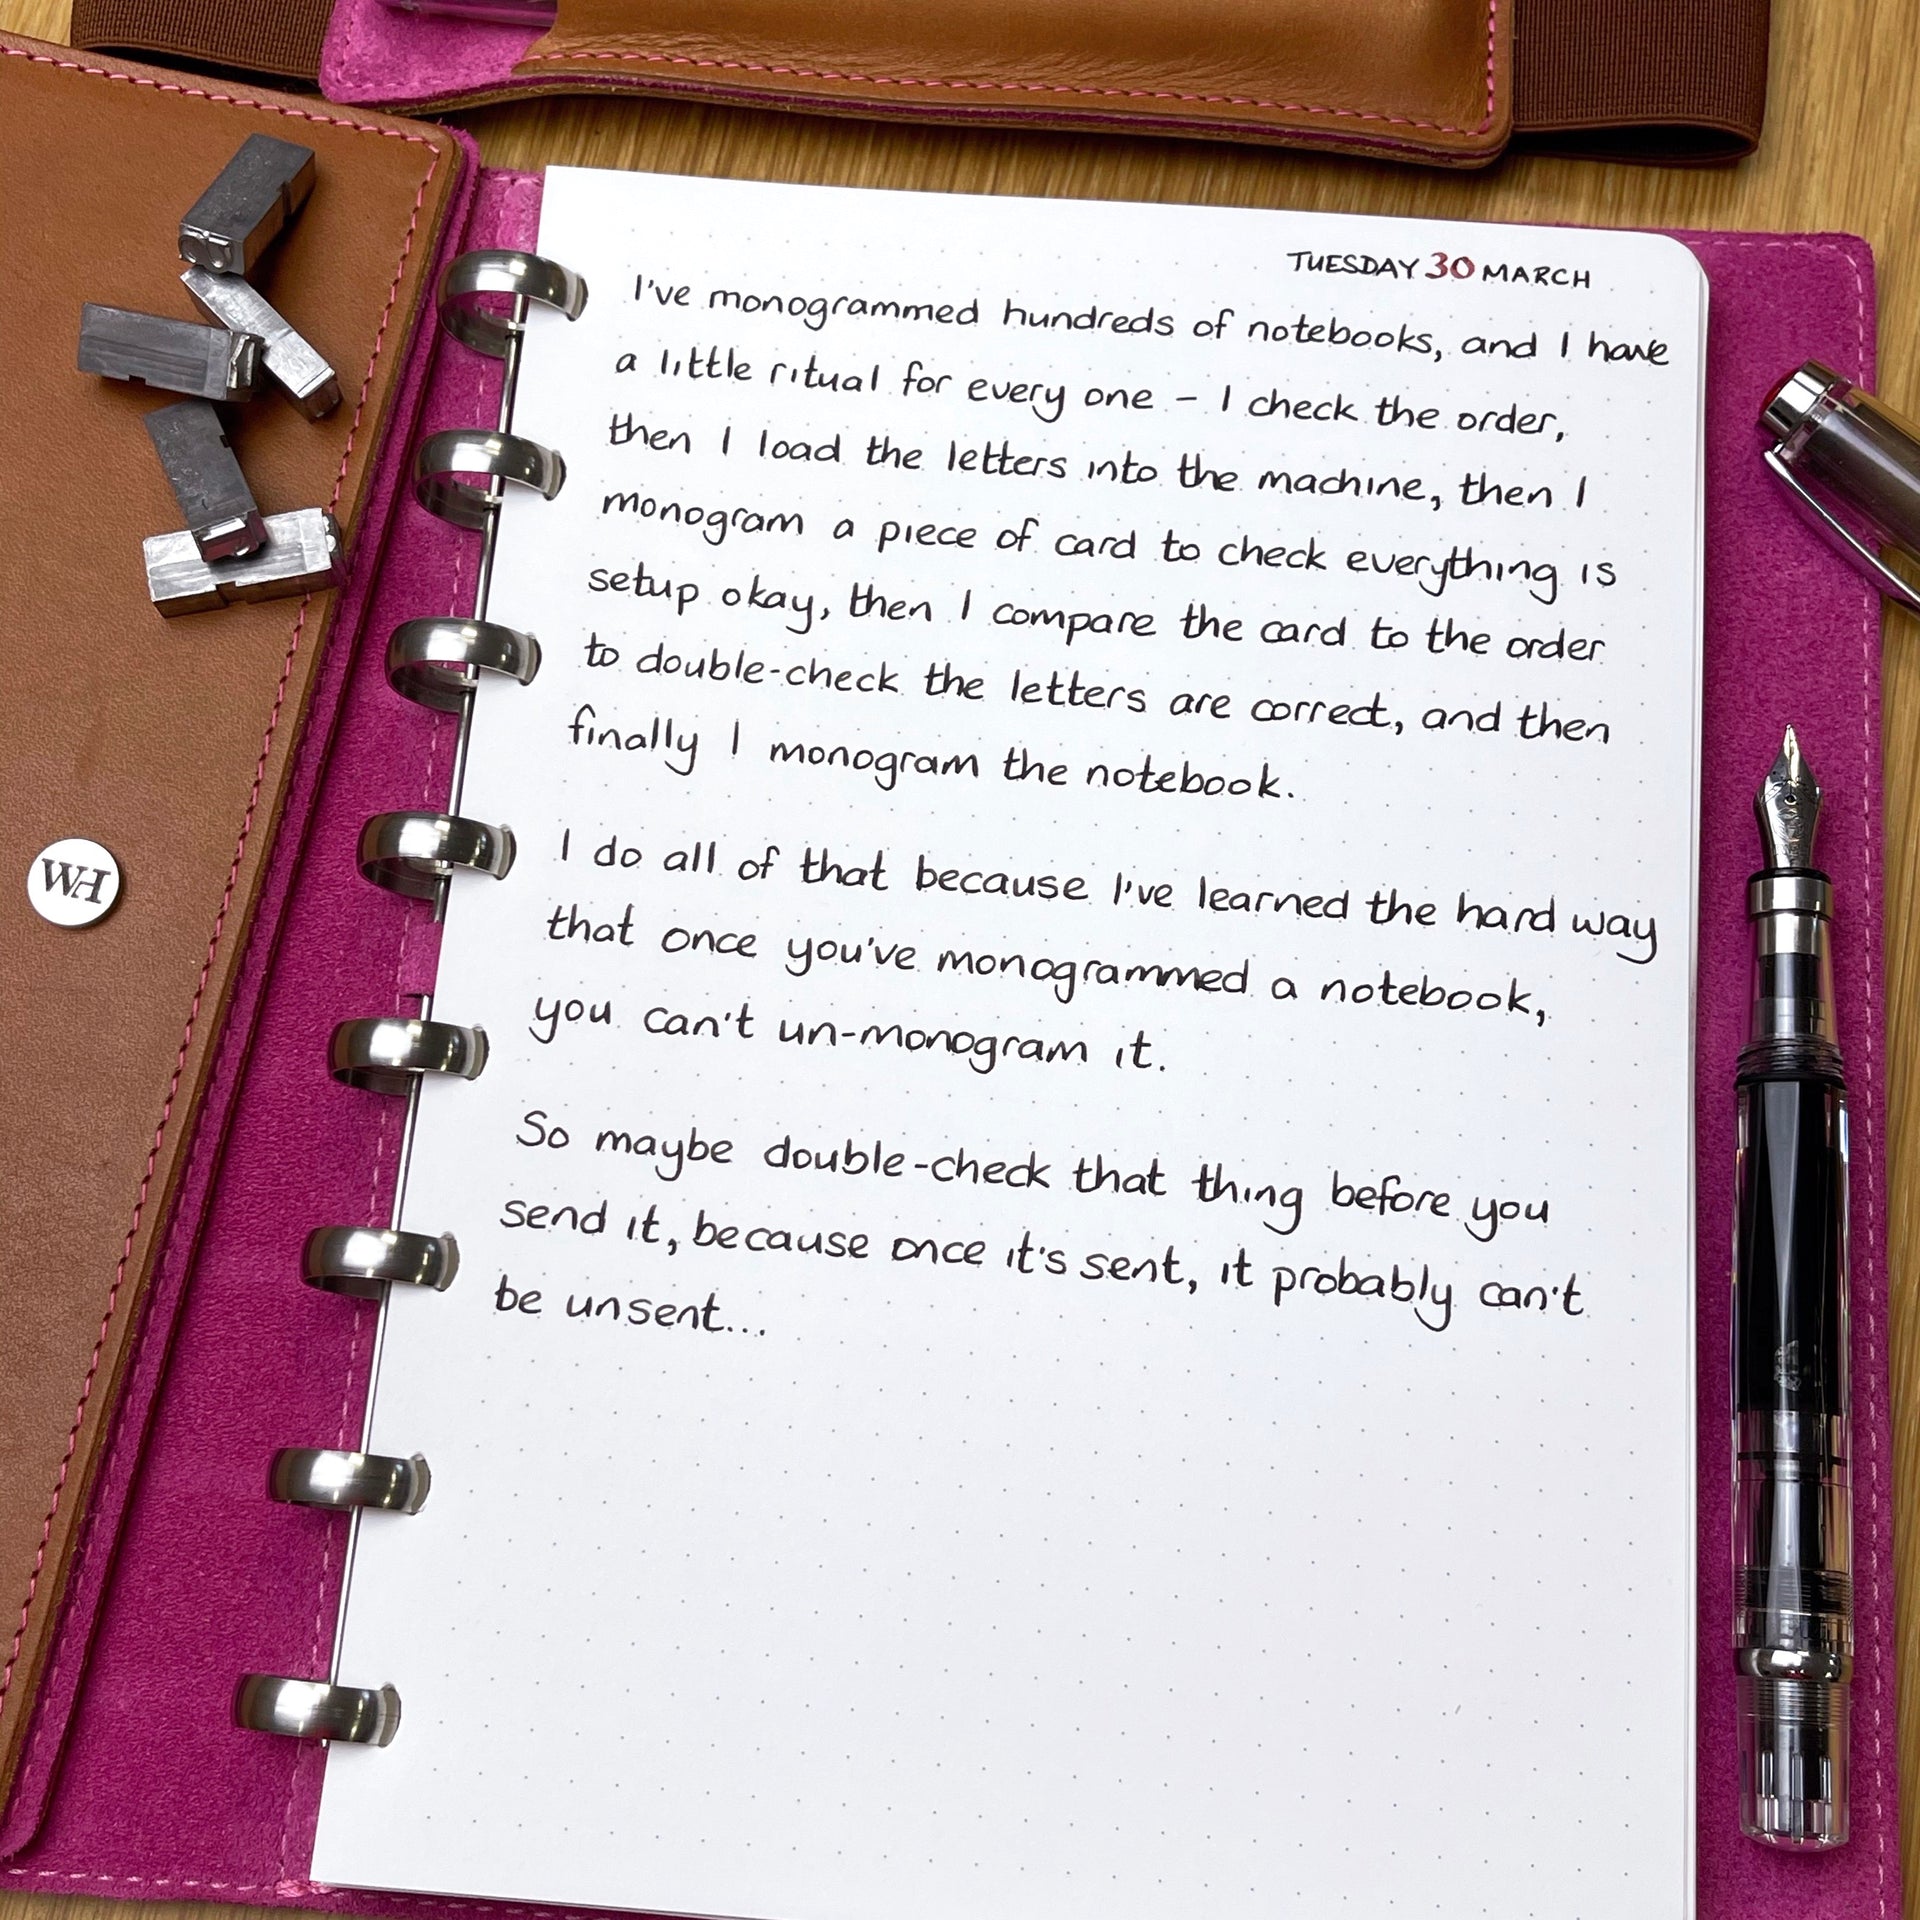 TUESDAY 30 MARCH
I've monogrammed hundreds of notebooks, and I have
a little ritual for every one – I check the order,
then I load the letters into the machine, then I
monogram a piece of card to check everything is
setup okay, then I compare the card to the order
to double-check the letters are correct, and then
finally I monogram the notebook.
I do all of that because I've learned the hard way
that once you've monogrammed a notebook,
you can't un-monogram it.
So maybe double-check that thing before you
send it, because once it's sent, it probably can't
be unsent...
WH